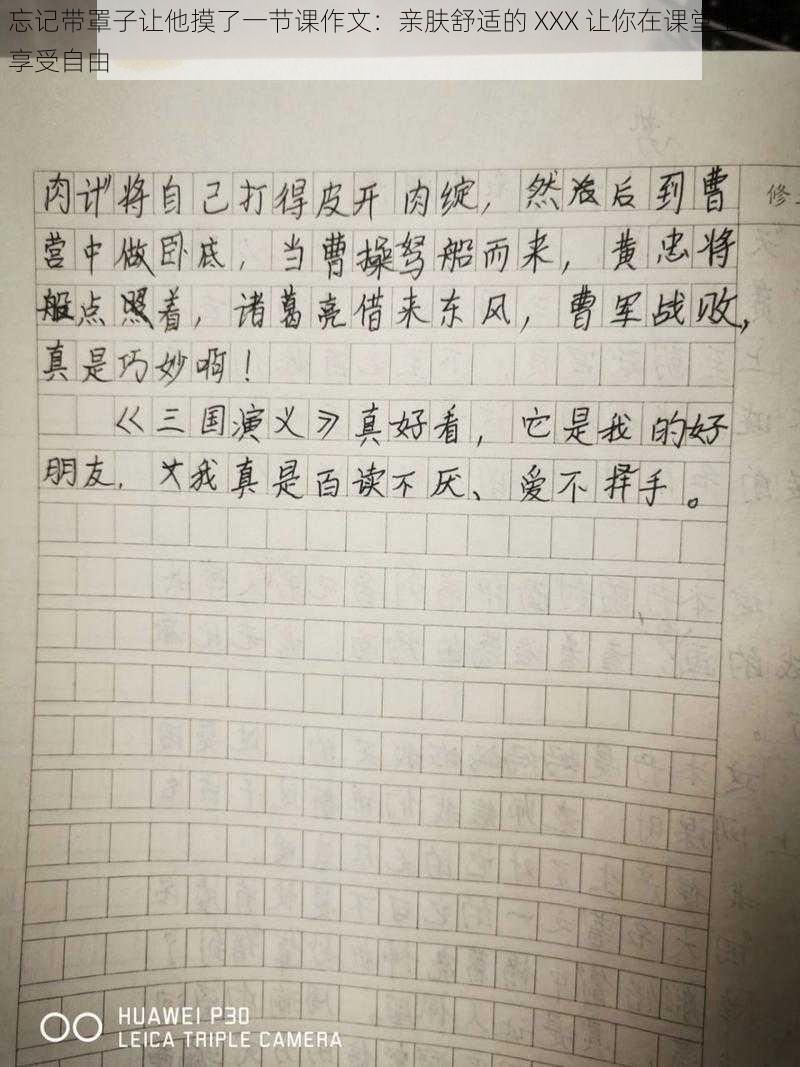 忘记带罩子让他摸了一节课作文：亲肤舒适的 XXX 让你在课堂上
享受自由
修
肉计"将自己打得皮开肉绽，然后到曹
营中做卧底，当曹操驽船而来，黄忠将
般点照着，诸葛亮借来东风，曹军战败，
真是巧妙啊！
《三国演义》真好看，它是我的好
朋友，我真是百读不厌、爱不择手。
HUAWEI P30
LEICA TRIPLE CAMERA